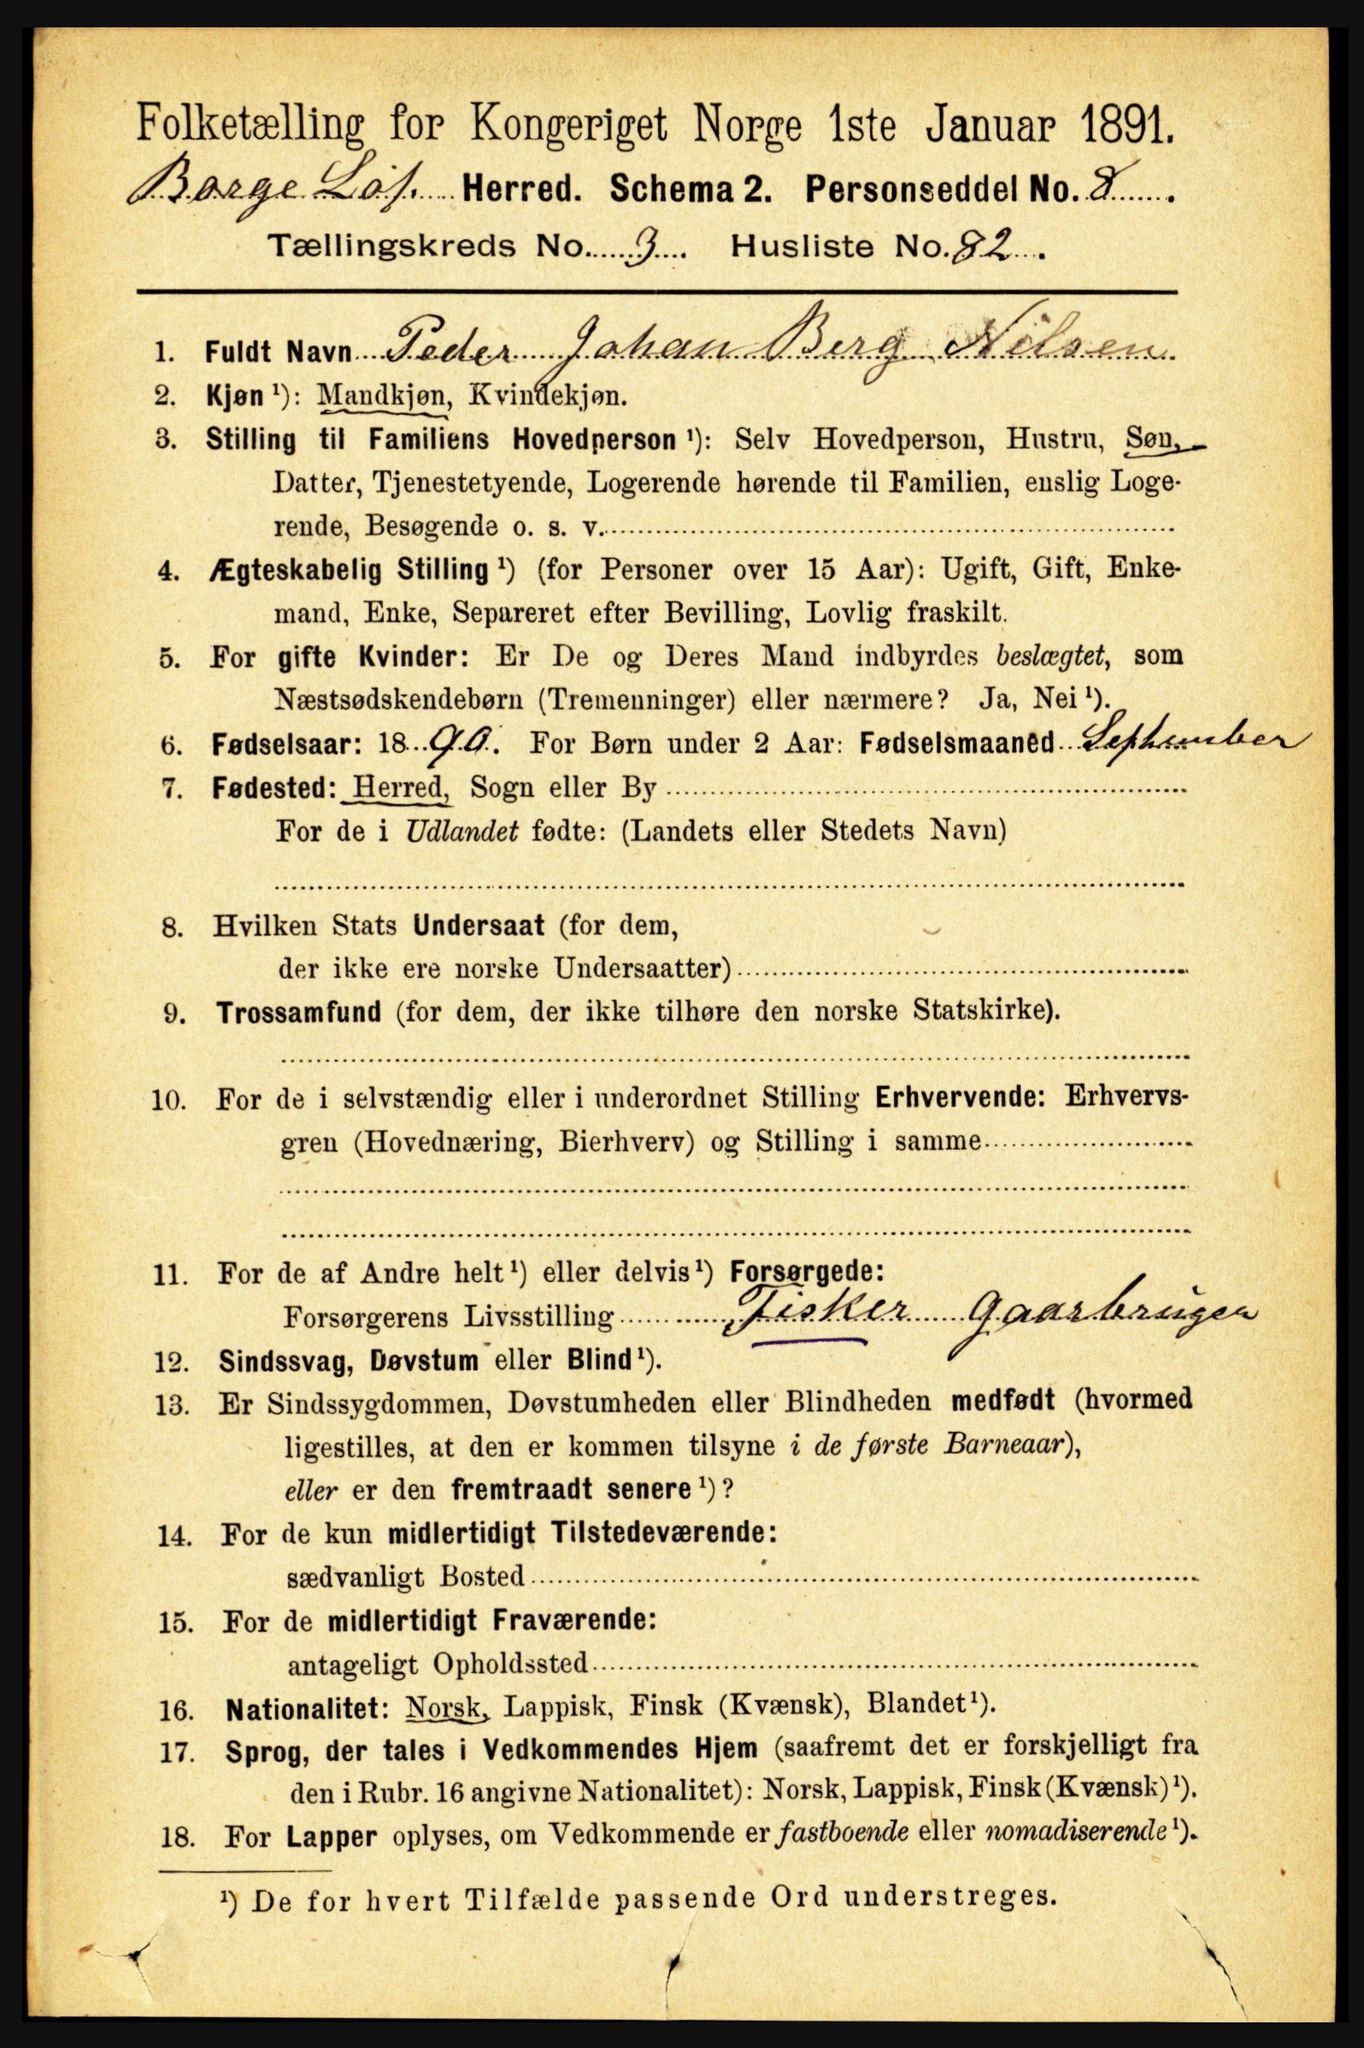 Folketælling for Kongeriget Norge 1ste Januar 1891.
Borge Lof. Herred. Schema 2. Personseddel No. 8.
Tællingskreds No. 3. Husliste No. 82.
1. Fuldt Navn Peder Johan Berg Nilsen
2. Kjøn ¹): Mandkjøn, Kvindekjøn.
3. Stilling til Familiens Hovedperson ¹): Selv Hovedperson, Hustru, Søn,
Datter, Tjenestetyende, Logerende hørende til Familien, enslig Loge-
rende, Besøgende o. s. v.
4. Ægteskabelig Stilling ¹) (for Personer over 15 Aar): Ugift, Gift, Enke-
mand, Enke, Separeret efter Bevilling, Lovlig fraskilt.
5. For gifte Kvinder: Er De og Deres Mand indbyrdes beslægtet, som
Næstsødskendebørn (Tremenninger) eller nærmere? Ja, Nei ¹).
6. Fødselsaar: 18 90. For Børn under 2 Aar: Fødselsmaaned September
7. Fødested: Herred, Sogn eller By
For de i Udlandet fødte: (Landets eller Stedets Navn)
8. Hvilken Stats Undersaat (for dem,
der ikke ere norske Undersaatter)
9. Trossamfund (for dem, der ikke tilhøre den norske Statskirke).
10. For de i selvstændig eller i underordnet Stilling Erhvervende: Erhvervs-
gren (Hovednæring, Bierhverv) og Stilling i samme
11. For de af Andre helt ¹) eller delvis ¹) Forsørgede:
Forsørgerens Livsstilling Fisker Gaarbruger
12. Sindssvag, Døvstum eller Blind ¹).
13. Er Sindssygdommen, Døvstumheden eller Blindheden medfødt (hvormed
ligestilles, at den er kommen tilsyne i de første Barneaar),
eller er den fremtraadt senere ¹)?
14. For de kun midlertidigt Tilstedeværende:
sædvanligt Bosted
15. For de midlertidigt Fraværende:
antageligt Opholdssted
16. Nationalitet: Norsk, Lappisk, Finsk (Kvænsk), Blandet ¹).
17. Sprog, der tales i Vedkommendes Hjem (saafremt det er forskjelligt fra
den i Rubr. 16 angivne Nationalitet): Norsk, Lappisk, Finsk (Kvænsk) ¹).
18. For Lapper oplyses, om Vedkommende er fastboende eller nomadiserende ¹).
¹) De for hvert Tilfælde passende Ord understreges.